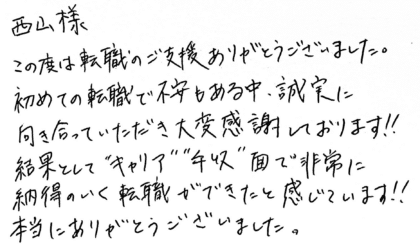 西山様
この度は転職のご支援ありがとうございました。
初めての転職で不安もある中、誠実に
向き合っていただき大変感謝しております!!
結果として"キャリア""年収"面で非常に
納得のいく転職ができたと感じています!!
本当にありがとうございました。